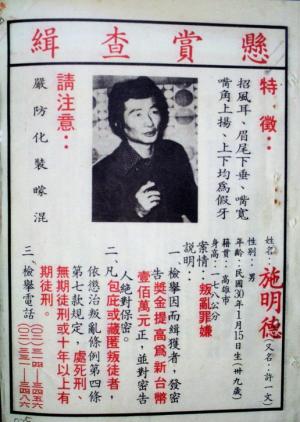 懸賞查緝
特徵：
招風耳、眉尾下垂、嘴寬
嘴角上揚、上下均為假牙
請注意：
嚴防化裝曚混
姓名：施明德（又名：許一文）
性別：男
年齡：民國30年1月15日生（卅九歲）
籍貫：高雄市
身高：一七八公分
案情：叛亂罪嫌
說明：
一、檢舉因而緝獲者，發密
告獎金提高為新台幣
壹佰萬元正，並對密告
人絶對保密。
二、凡包庇或藏匿叛徒者，
依懲治叛亂條例第四條
第七款規定，處死刑、
無期徒刑或十年以上有
期徒刑。
三、檢舉電話
（〇二）三一四—三四五六